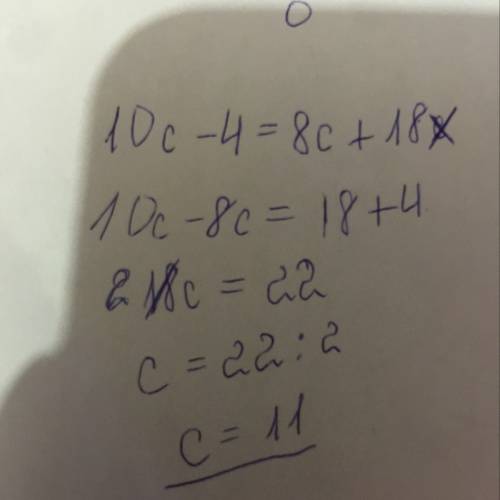 10c - 4 = 8c + 18
10c - 8c = 18 + 4
2c = 22
c = 22 : 2
c = 11